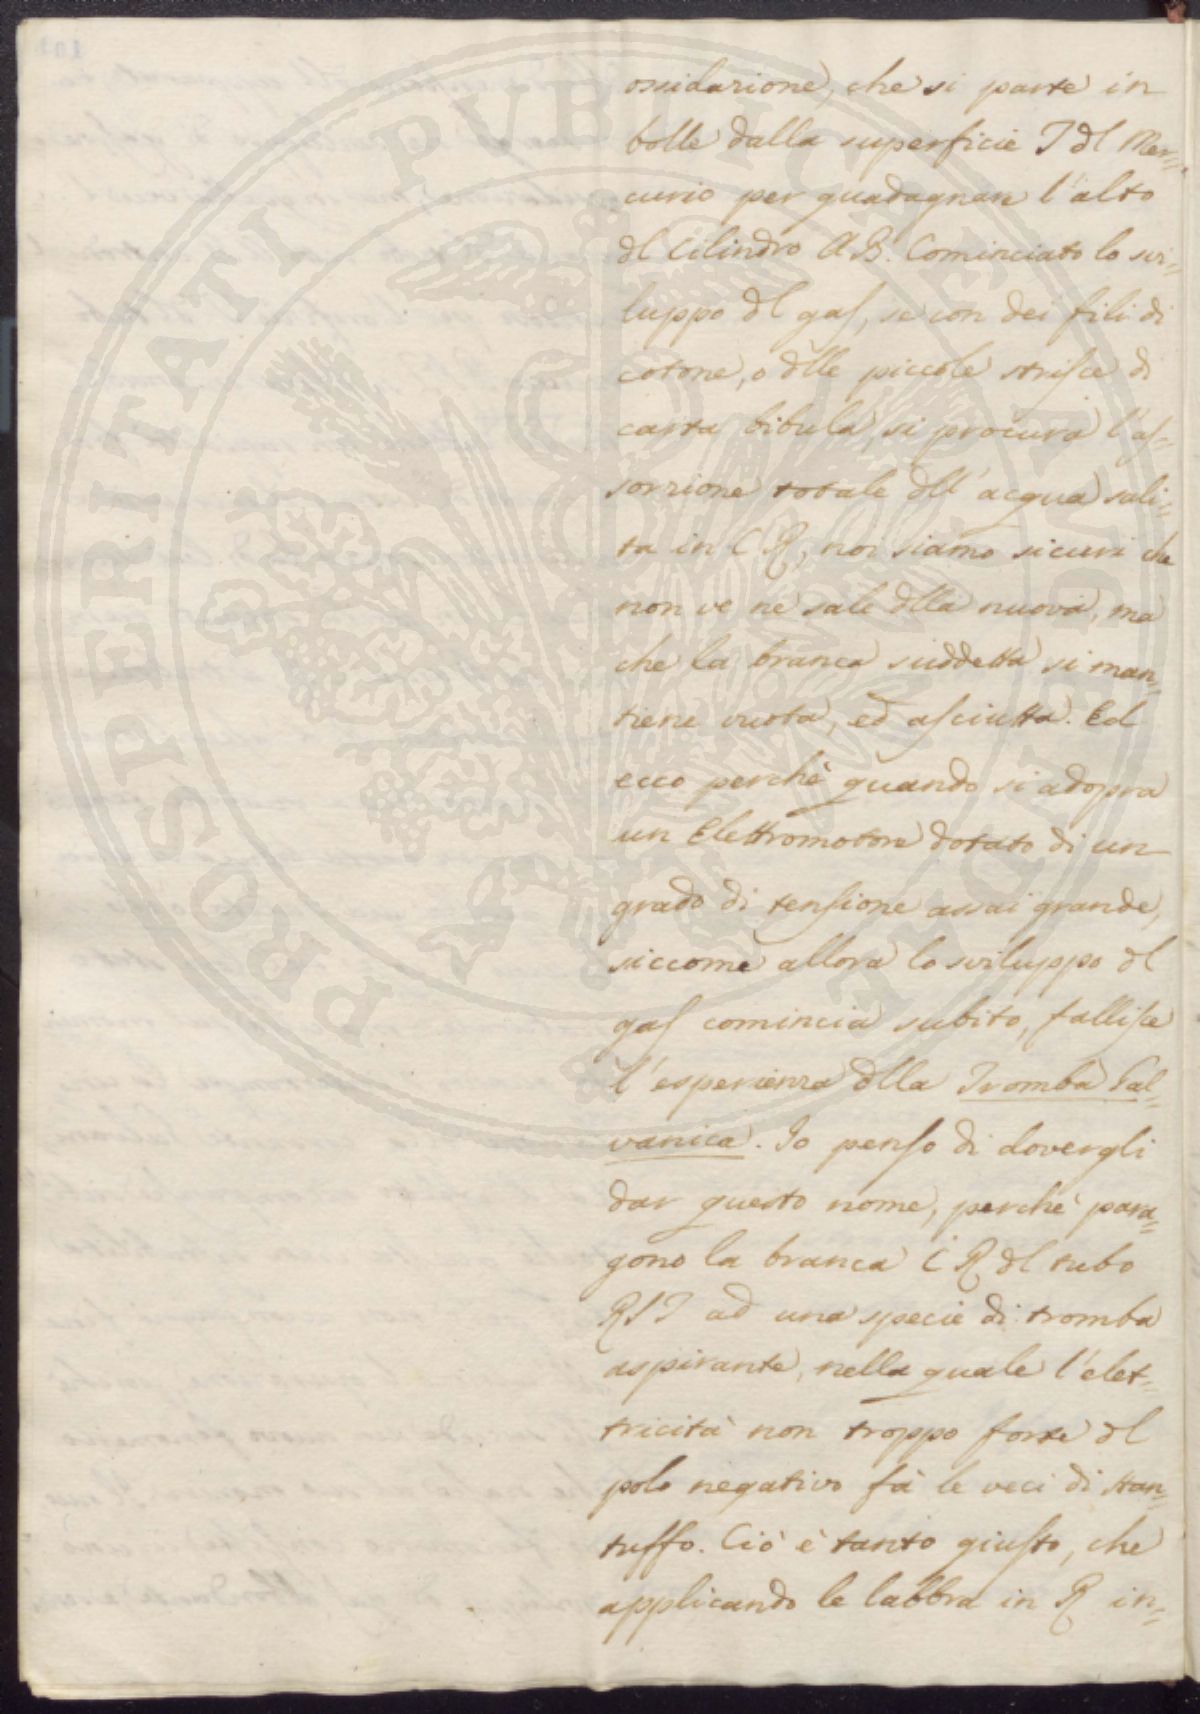 ossidazione, che si parte in
bolle dalla superficie T dl Mer=
curio per guadagnare l'alto
dl Cilindro AB. Cominciato lo svi=
luppo dl gas, se con dei fili di
cotone, o dlle piccole strisce di
carta bibula, si procura l'as=
sorzione totale dll' acqua sali=
ta in CR, noi siamo sicuri che
non ve ne sale dlla nuova, ma
che la branca suddetta si man=
tiene vuota, ed asciutta. Ed
ecco perchè quando si adopra
un Elettromotore dotato di un
grado di tensione assai grande,
siccome allora lo sviluppo dl
gas comincia subito, fallisce
l'esperienza dlla Tromba Gal=
vanica. Io penso di dovergli
dar questo nome, perchè para=
gono la branca CR dl tubo
RST ad una specie di tromba
aspirante, nella quale l'elet=
tricità non troppo forte dl
polo negativo fà le veci di stan=
tuffo. Ciò è tanto giusto, che
applicando le labbra in R in=
PROSPERITATI PUBLICAE AUGENDAE